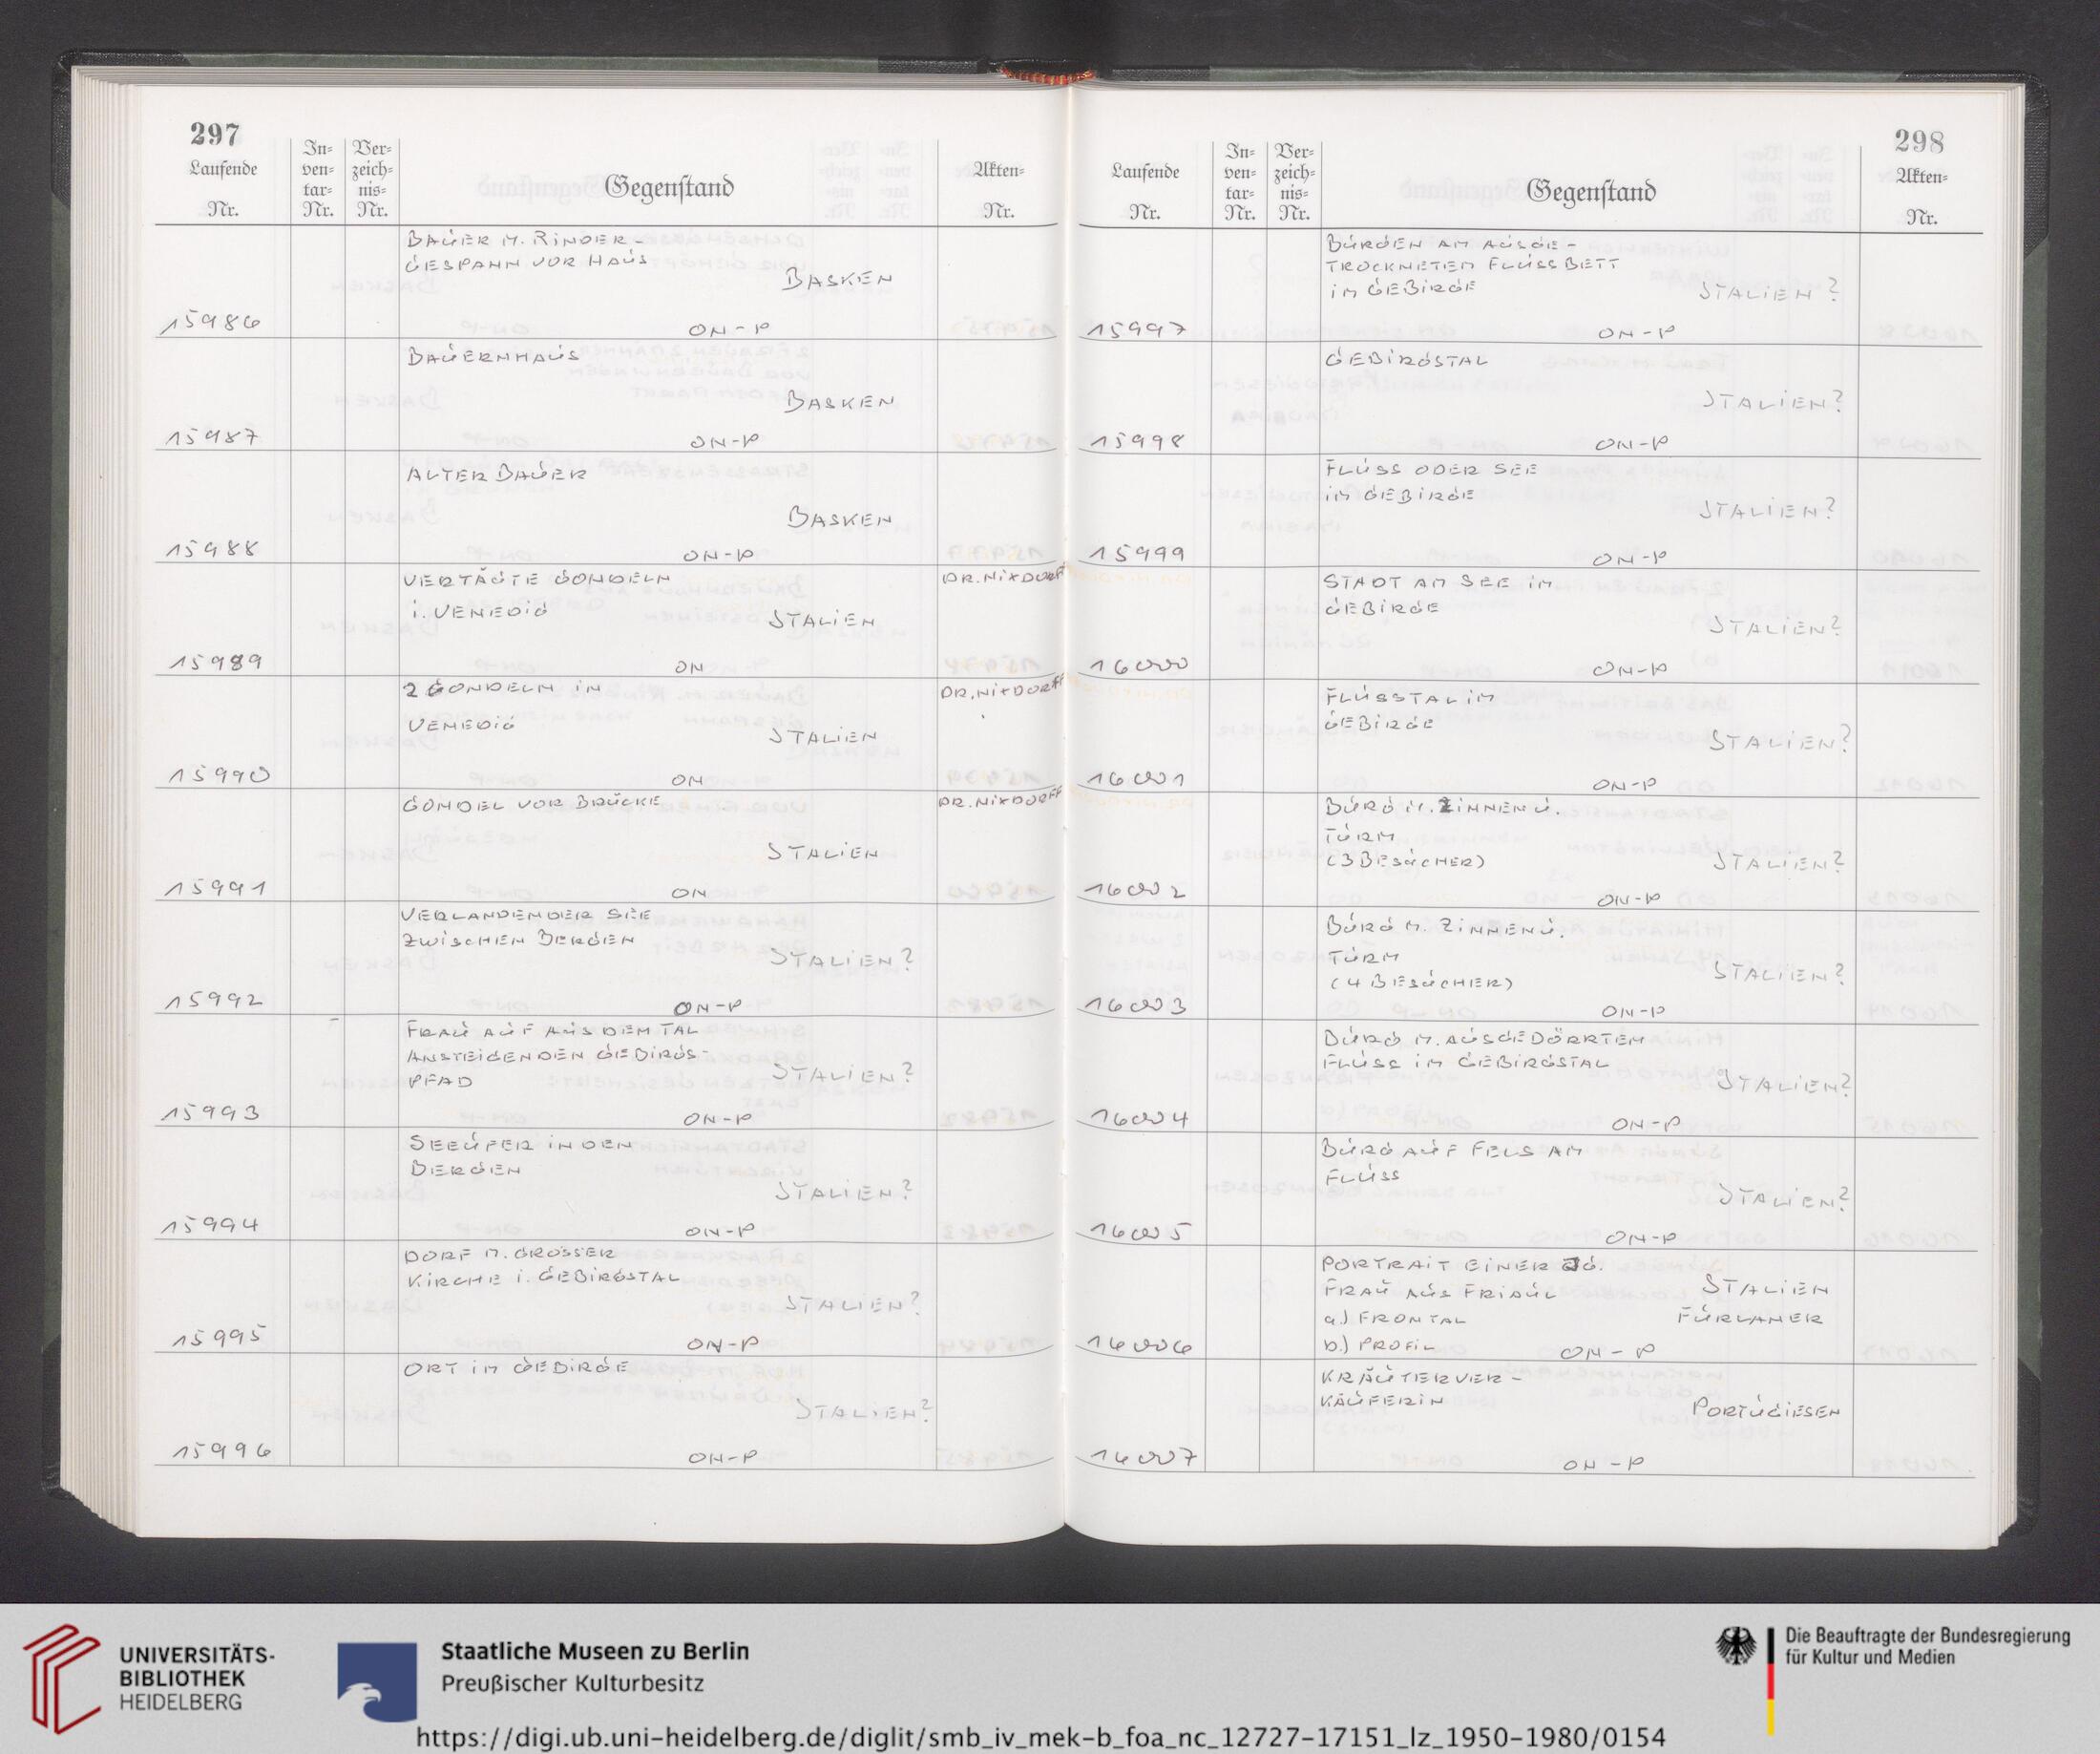 297
Laufende Nr.
In-ven-tar-Nr.
Ver-zeich-nis-Nr.
Gegenstand
Akten-Nr.
BAUER M. RINDER-
GESPANN VOR HAUS
BASKEN
15986
ON-P
BAUERNHAUS
BASKEN
15987
ON-P
ALTER BAUER
BASKEN
15988
ON-P
VERTÄUTE GONDELN
DR. NIXDORFF
i. VENEDIG
ITALIEN
15989
ON
2 GONDELN IN
DR. NIXDORFF
VENEDIG
ITALIEN
15990
ON
GONDEL VOR BRÜCKE
DR. NIXDORFF
ITALIEN
15991
ON
VERLANDENDER SEE
ZWISCHEN BERGEN
ITALIEN?
15992
ON-P
FRAU AUF AUS DEM TAL
ANSTEIGENDEN GEBIRGS-
PFAD
ITALIEN?
15993
ON-P
SEEUFER IN DEN
BERGEN
ITALIEN?
15994
ON-P
DORF M. GROSSER
KIRCHE i. GEBIRGSTAL
ITALIEN?
15995
ON-P
ORT IM GEBIRGE
ITALIEN?
15996
ON-P
298
Laufende Nr.
In-ven-tar-Nr.
Ver-zeich-nis-Nr.
Gegenstand
Akten-Nr.
BURGEN AM AUSGE-
TROCKNETEM FLUSSBETT
IM GEBIRGE
ITALIEN?
15997
ON-P
GEBIRGSTAL
ITALIEN?
15998
ON-P
FLUSS ODER SEE
IM GEBIRGE
ITALIEN?
15999
ON-P
STADT AM SEE IM
GEBIRGE
ITALIEN?
16000
ON-P
FLUSSTAL IM
GEBIRGE
ITALIEN?
16001
ON-P
BURG M. ZINNEN U.
TURM
(3 BESUCHER)
ITALIEN?
16002
ON-P
BURG M. ZINNEN U.
TURM
(4 BESUCHER)
ITALIEN?
16003
ON-P
BURG M. AUSGEDÖRRTEM
FLUSS IM GEBIRGSTAL
ITALIEN?
16004
ON-P
BURG AUF FELS AM
FLUSS
ITALIEN?
16005
ON-P
PORTRAIT EINER JG.
FRAU AUS FRIAUL
ITALIEN
a.) FRONTAL
FURLANER
b.) PROFIL
16006
ON-P
KRÄUTERVER-
KÄUFERIN
PORTUGIESEN
16007
ON-P
UNIVERSITÄTS-
BIBLIOTHEK
HEIDELBERG
Staatliche Museen zu Berlin
Preußischer Kulturbesitz
Die Beauftragte der Bundesregierung
für Kultur und Medien
https://digi.ub.uni-heidelberg.de/diglit/smb_iv_mek-b_foa_nc_12727-17151_lz_1950-1980/0154